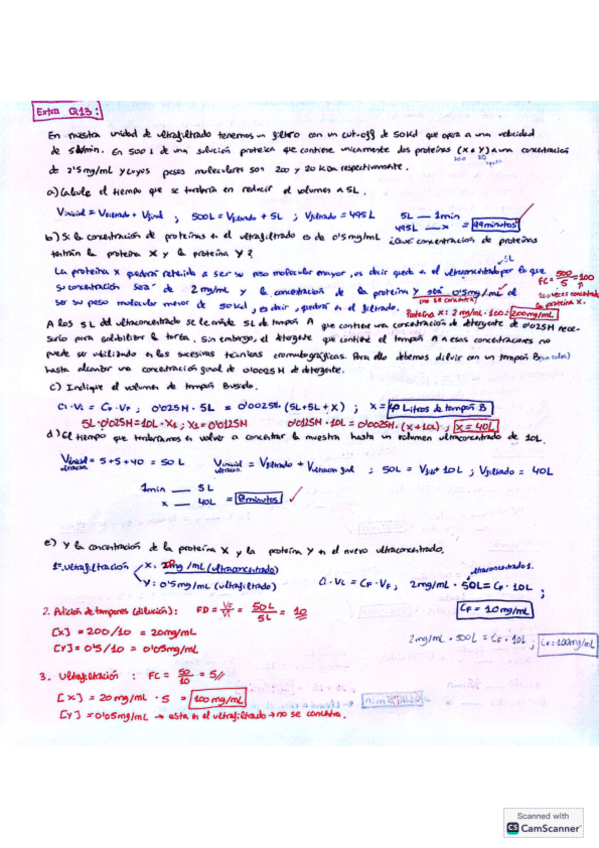 Extra Q13:
En nuestra unidad de ultrafiltrado tenemos un filtro con un cut-off de 50Kd que opera a una velocidad
de 5l/min. En 500 L de una solución proteica que contiene unicamente dos proteinas (X e Y) a una concentración
200 20
de 2'5 mg/mL y cuyos pesos moleculares son 200 y 20 KDa respectivamente.
a) Calcule el tiempo que se tardaría en reducir el volumen a 5L.
Vinicial = Vfiltrado + Vfinal ; 500L = Vfiltrado + 5L ; Vfiltrado = 495L 5L — 1min
495L — x = 99 minutos
b) Si la concentración de proteinas en el ultrafiltrado es de 0'5 mg/mL ¿Qué concentracion de proteinas
tendrán la proteina X y la proteina Y?
5L
La proteina X quedará retenida a ser su peso molecular mayor, es decir queda en el ultraconcentrado por lo que
FC = 500/5 = 100
su concentración será de 2 mg/mL y la concentración de la proteina Y será 0'5 mg/mL al
(no se concentra)
100 veces concentrada
la proteina X.
ser su peso molecular menor de 50Kd, es decir, quedará en el filtrado.
Proteína X: 2 mg/mL · 100 = 200mg/mL
A los 5L del ultraconcentrado se le añade 5L de tampón A que contiene una concentración de detergente de 0'025M nece-
sario para solubilizar la
Sin embargo, el detergente que contiene el tampon A a esas concentraciones no
puede ser utilizado en las sucesivas técnicas cromatográficas. Para ello debemos diluir con un tampon B
hasta alcanzar una concentración final de 0'0025M de detergente.
c) Indique el volumen de tampon B usado.
Ci · Vi = CF · VF ; 0'025M · 5L = 0'0025M · (5L+5L+X) ; X = 40 Litros de tampon B
5L · 0'025M = 10L · X1 ; X1 = 0'0125M 0'0125M · 10L = 0'0025M · (x+10L) ; X = 40L
d) El tiempo que tardaríamos en volver a concentrar la muestra hasta un volumen ultraconcentrado de 10L.
Vinicial = 5+5+40 = 50L Vinicial = Vfiltrado + Vultracon final ; 50L = Vfilt + 10L ; Vfiltrado = 40L
1min — 5L
x — 40L = 8minutos
e) Y la concentración de la proteina X y la proteina Y en el nuevo ultraconcentrado.
1ª Ultrafiltración X: 2mg/mL (ultraconcentrado)
Y: 0'5mg/mL (ultrafiltrado)
ultraconcentrado 1.
Ci · Vi = CF · VF ; 2mg/mL · 50L = CF · 10L ;
CF = 10mg/mL
2. Adicion de tampones (dilución): FD = VF/Vi = 50L/5L = 10
[X] = 200/10 = 20mg/mL
[Y] = 0'5/10 = 0'05mg/mL
2mg/mL · 500L = CF · 10L ; CF = 100mg/mL
3. Ultrafiltración : FC = 50/10 = 5
[X] = 20 mg/mL · 5 = 100 mg/mL
[Y] = 0'05 mg/mL → esta en el ultrafiltrado → no se concentra.
Scanned with
CS CamScanner